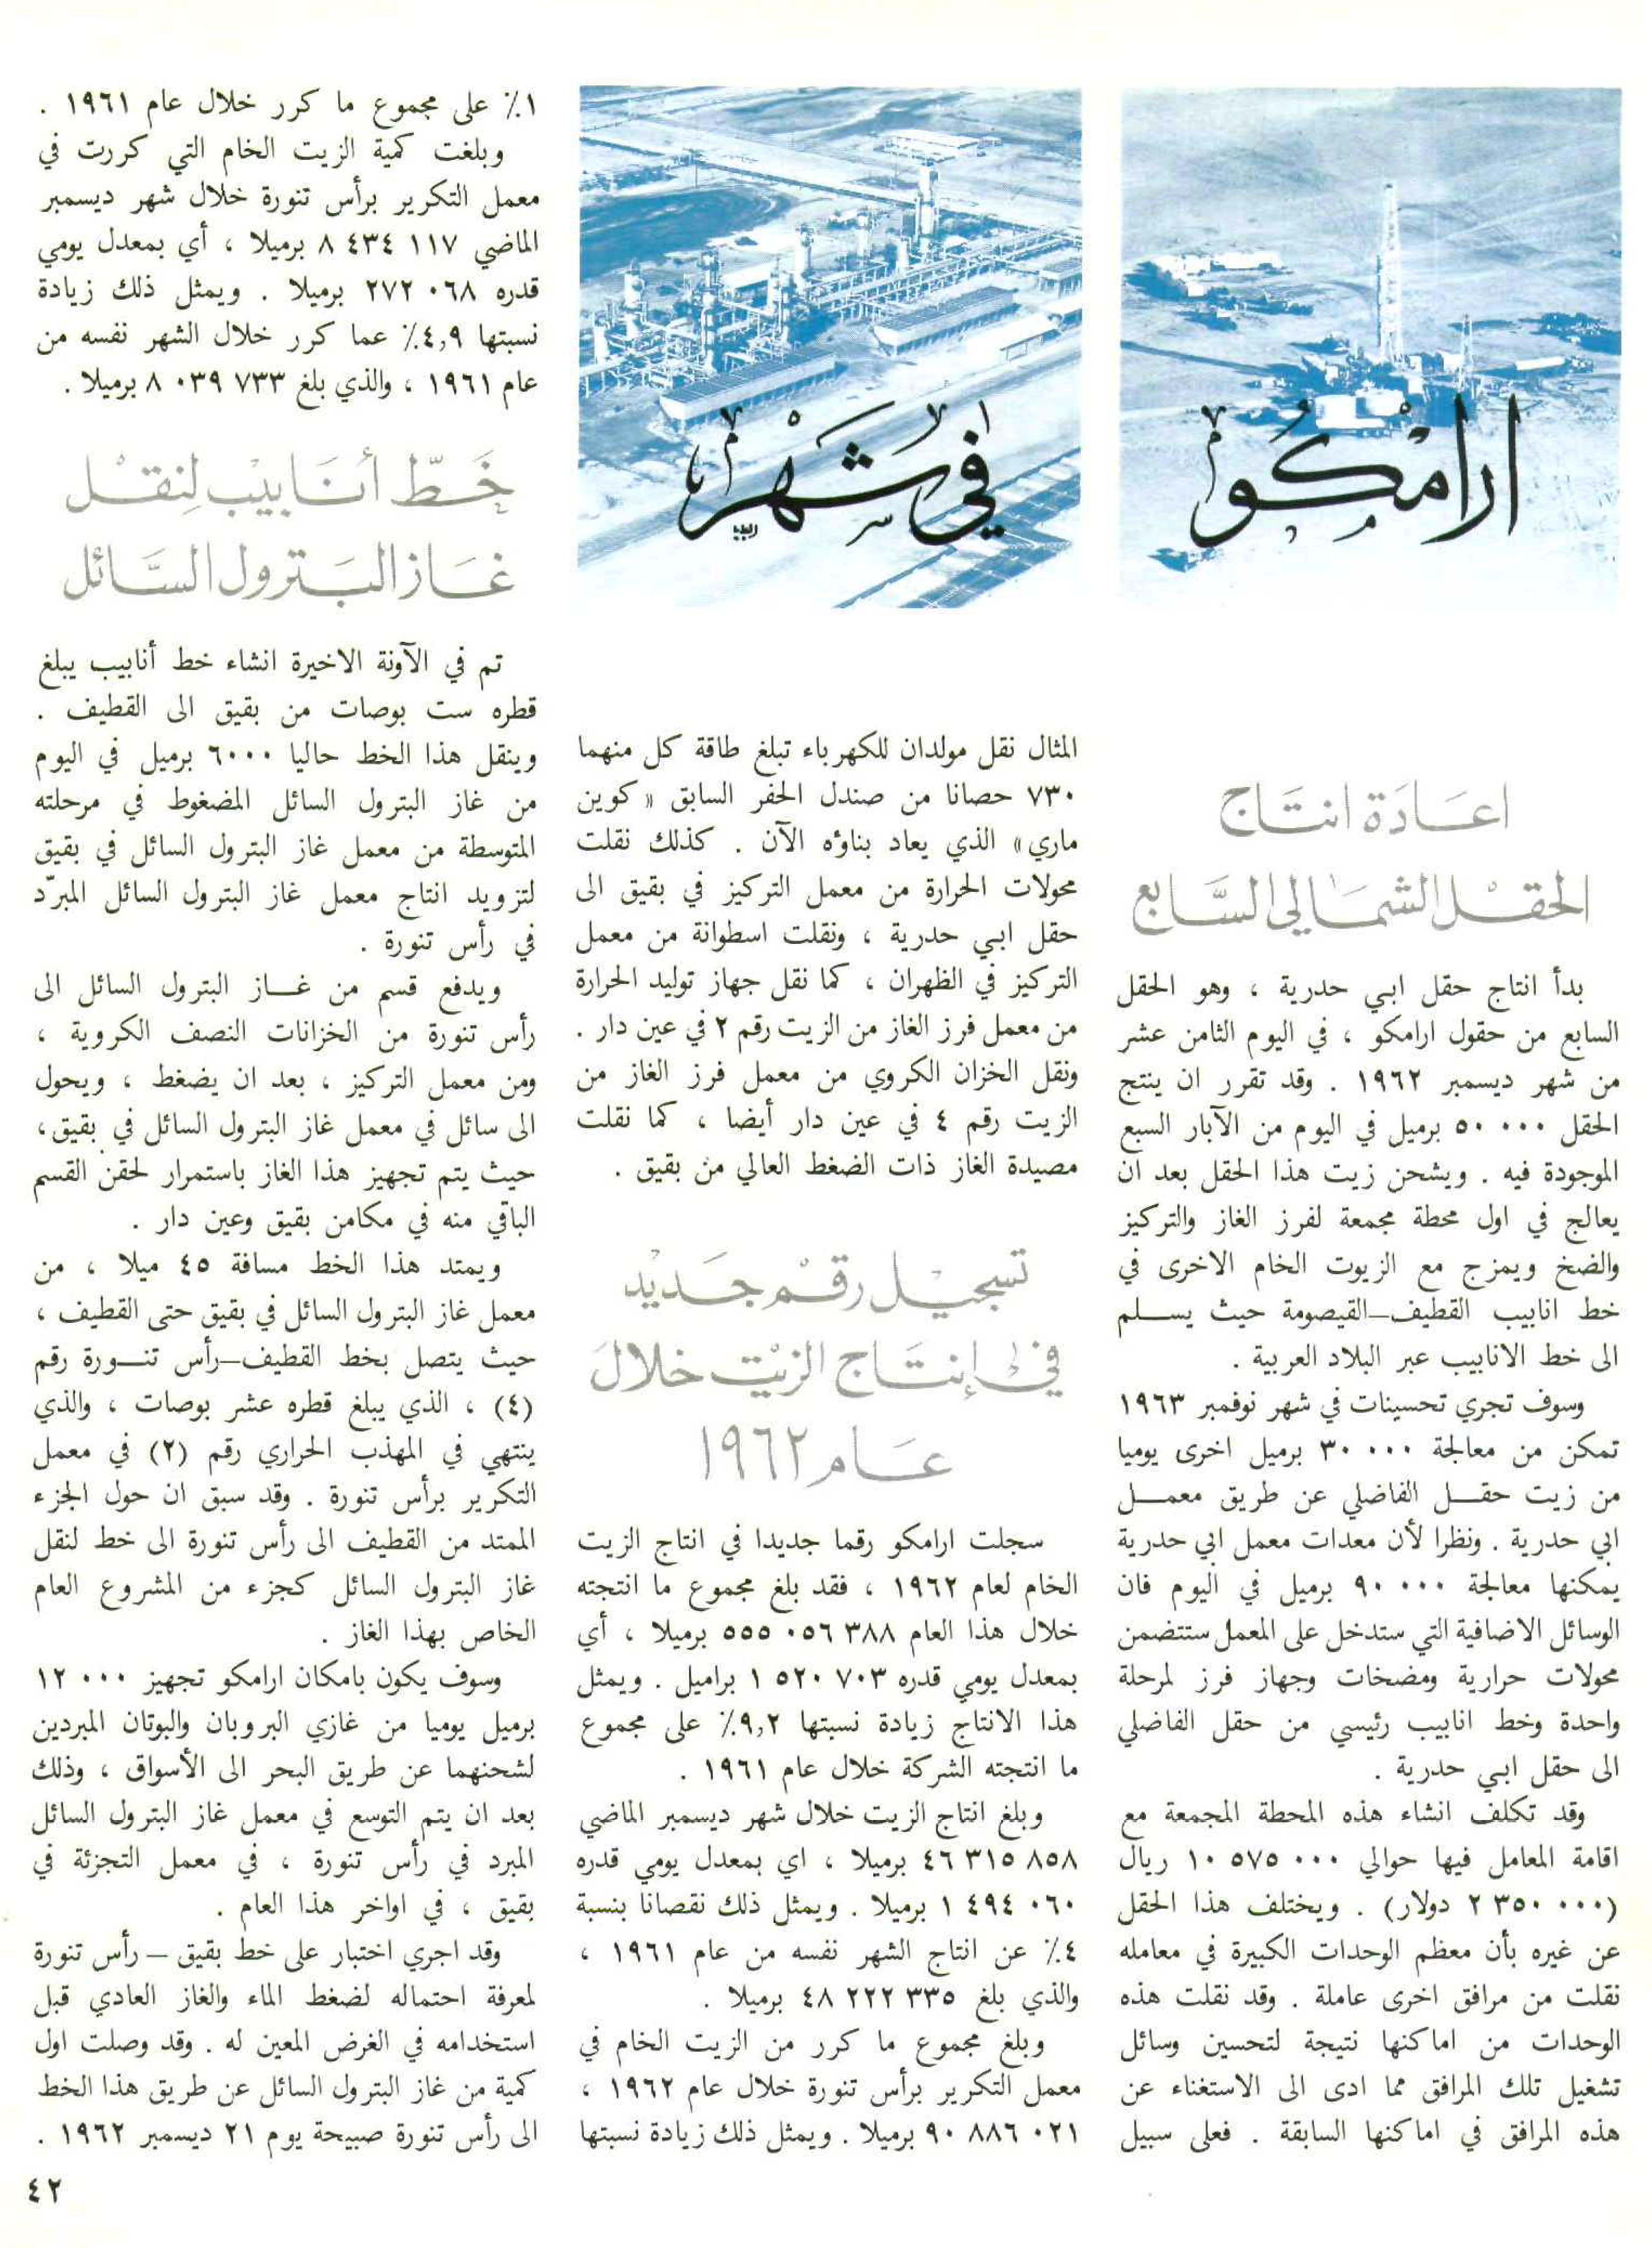 ارامكو
في شهر
اعادة انتاج
الحقل الشمالي السابع
بدأ انتاج حقل ابي حدرية ، وهو الحقل
السابع من حقول ارامكو ، في اليوم الثامن عشر
من شهر ديسمبر ١٩٦٢ . وقد تقرر ان ينتج
الحقل ٥٠ ٠٠٠ برميل في اليوم من الآبار السبع
الموجودة فيه . ويشحن زيت هذا الحقل بعد ان
يعالج في اول محطة مجمعة لفرز الغاز والتركيز
والضخ ويمزج مع الزيوت الخام الاخرى في
خط انابيب القطيف–القيصومة حيث يسلم
الى خط الانابيب عبر البلاد العربية .
وسوف تجري تحسينات في شهر نوفمبر ١٩٦٣
تمكن من معالجة ٣٠ ٠٠٠ برميل اخرى يوميا
من زيت حقل الفاضلي عن طريق معمل
ابي حدرية . ونظرا لأن معدات معمل ابي حدرية
يمكنها معالجة ٩٠ ٠٠٠ برميل في اليوم فان
الوسائل الاضافية التي ستدخل على المعمل ستتضمن
محولات حرارية ومضخات وجهاز فرز لمرحلة
واحدة وخط انابيب رئيسي من حقل الفاضلي
الى حقل ابي حدرية .
وقد تكلف انشاء هذه المحطة المجمعة مع
اقامة المعامل فيها حوالي ١٠ ٥٧٥ ٠٠٠ ريال
(٢ ٣٥٠ ٠٠٠ دولار) . ويختلف هذا الحقل
عن غيره بأن معظم الوحدات الكبيرة في معامله
نقلت من مرافق اخرى عاملة . وقد نقلت هذه
الوحدات من اماكنها نتيجة لتحسين وسائل
تشغيل تلك المرافق مما ادى الى الاستغناء عن
هذه المرافق في اماكنها السابقة . فعلى سبيل
المثال نقل مولدان للكهرباء تبلغ طاقة كل منهما
٧٣٠ حصانا من صندل الحفر السابق « كوين
ماري» الذي يعاد بناؤه الآن . كذلك نقلت
محولات الحرارة من معمل التركيز في بقيق الى
حقل ابي حدرية ، ونقلت اسطوانة من معمل
التركيز في الظهران ، كما نقل جهاز توليد الحرارة
من معمل فرز الغاز من الزيت رقم ٢ في عين دار .
ونقل الخزان الكروي من معمل فرز الغاز من
الزيت رقم ٤ في عين دار أيضا ، كما نقلت
مصيدة الغاز ذات الضغط العالي من بقيق .
تسجيل رقم جديد
في إنتاج الزيت خلال
عام ١٩٦٢
سجلت ارامكو رقما جديدا في انتاج الزيت
الخام لعام ١٩٦٢ ، فقد بلغ مجموع ما انتجته
خلال هذا العام ٥٥٥ ٠٥٦ ٣٨٨ برميلا ، أي
بمعدل يومي قدره ١ ٥٢٠ ٧٠٣ براميل . ويمثل
هذا الانتاج زيادة نسبتها ٩,٢٪ على مجموع
ما انتجته الشركة خلال عام ١٩٦١ .
وبلغ انتاج الزيت خلال شهر ديسمبر الماضي
٤٦ ٣١٥ ٨٥٨ برميلا ، اي بمعدل يومي قدره
١ ٤٩٤ ٠٦٠ برميلا . ويمثل ذلك نقصانا بنسبة
٤٪ عن انتاج الشهر نفسه من عام ١٩٦١ ،
والذي بلغ ٤٨ ٢٢٢ ٣٣٥ برميلا .
وبلغ مجموع ما كرر من الزيت الخام في
معمل التكرير برأس تنورة خلال عام ١٩٦٢ ،
٩٠ ٨٨٦ ٠٢١ برميلا . ويمثل ذلك زيادة نسبتها
١٪ على مجموع ما كرر خلال عام ١٩٦١ .
وبلغت كمية الزيت الخام التي كررت في
معمل التكرير برأس تنورة خلال شهر ديسمبر
الماضي ٨ ٤٣٤ ١١٧ برميلا ، أي بمعدل يومي
قدره ٢٧٢ ٠٦٨ برميلا . ويمثل ذلك زيادة
نسبتها ٤,٩٪ عما كرر خلال الشهر نفسه من
عام ١٩٦١ ، والذي بلغ ٨ ٠٣٩ ٧٣٣ برميلا .
خط أنابيب لنقل
غاز البترول السائل
تم في الآونة الاخيرة انشاء خط أنابيب يبلغ
قطره ست بوصات من بقيق الى القطيف .
وينقل هذا الخط حاليا ٦٠٠٠ برميل في اليوم
من غاز البترول السائل المضغوط في مرحلته
المتوسطة من معمل غاز البترول السائل في بقيق
لتزويد انتاج معمل غاز البترول السائل المبرّد
في رأس تنورة .
ويدفع قسم من غاز البترول السائل الى
رأس تنورة من الخزانات النصف الكروية ،
ومن معمل التركيز ، بعد ان يضغط ، ويحول
الى سائل في معمل غاز البترول السائل في بقيق،
حيث يتم تجهيز هذا الغاز باستمرار لحقن القسم
الباقي منه في مكامن بقيق وعين دار .
ويمتد هذا الخط مسافة ٤٥ ميلا ، من
معمل غاز البترول السائل في بقيق حتى القطيف ،
حيث يتصل بخط القطيف–رأس تنورة رقم
(٤) ، الذي يبلغ قطره عشر بوصات ، والذي
ينتهي في المهذب الحراري رقم (٢) في معمل
التكرير برأس تنورة . وقد سبق ان حول الجزء
الممتد من القطيف الى رأس تنورة الى خط لنقل
غاز البترول السائل كجزء من المشروع العام
الخاص بهذا الغاز .
وسوف يكون بامكان ارامكو تجهيز ١٢ ٠٠٠
برميل يوميا من غازي البروبان والبوتان المبردين
لشحنهما عن طريق البحر الى الأسواق ، وذلك
بعد ان يتم التوسع في معمل غاز البترول السائل
المبرد في رأس تنورة ، في معمل التجزئة في
بقيق ، في اواخر هذا العام .
وقد اجري اختبار على خط بقيق – رأس تنورة
لمعرفة احتماله لضغط الماء والغاز العادي قبل
استخدامه في الغرض المعين له . وقد وصلت اول
كمية من غاز البترول السائل عن طريق هذا الخط
الى رأس تنورة صبيحة يوم ٢١ ديسمبر ١٩٦٢ .
٤٢